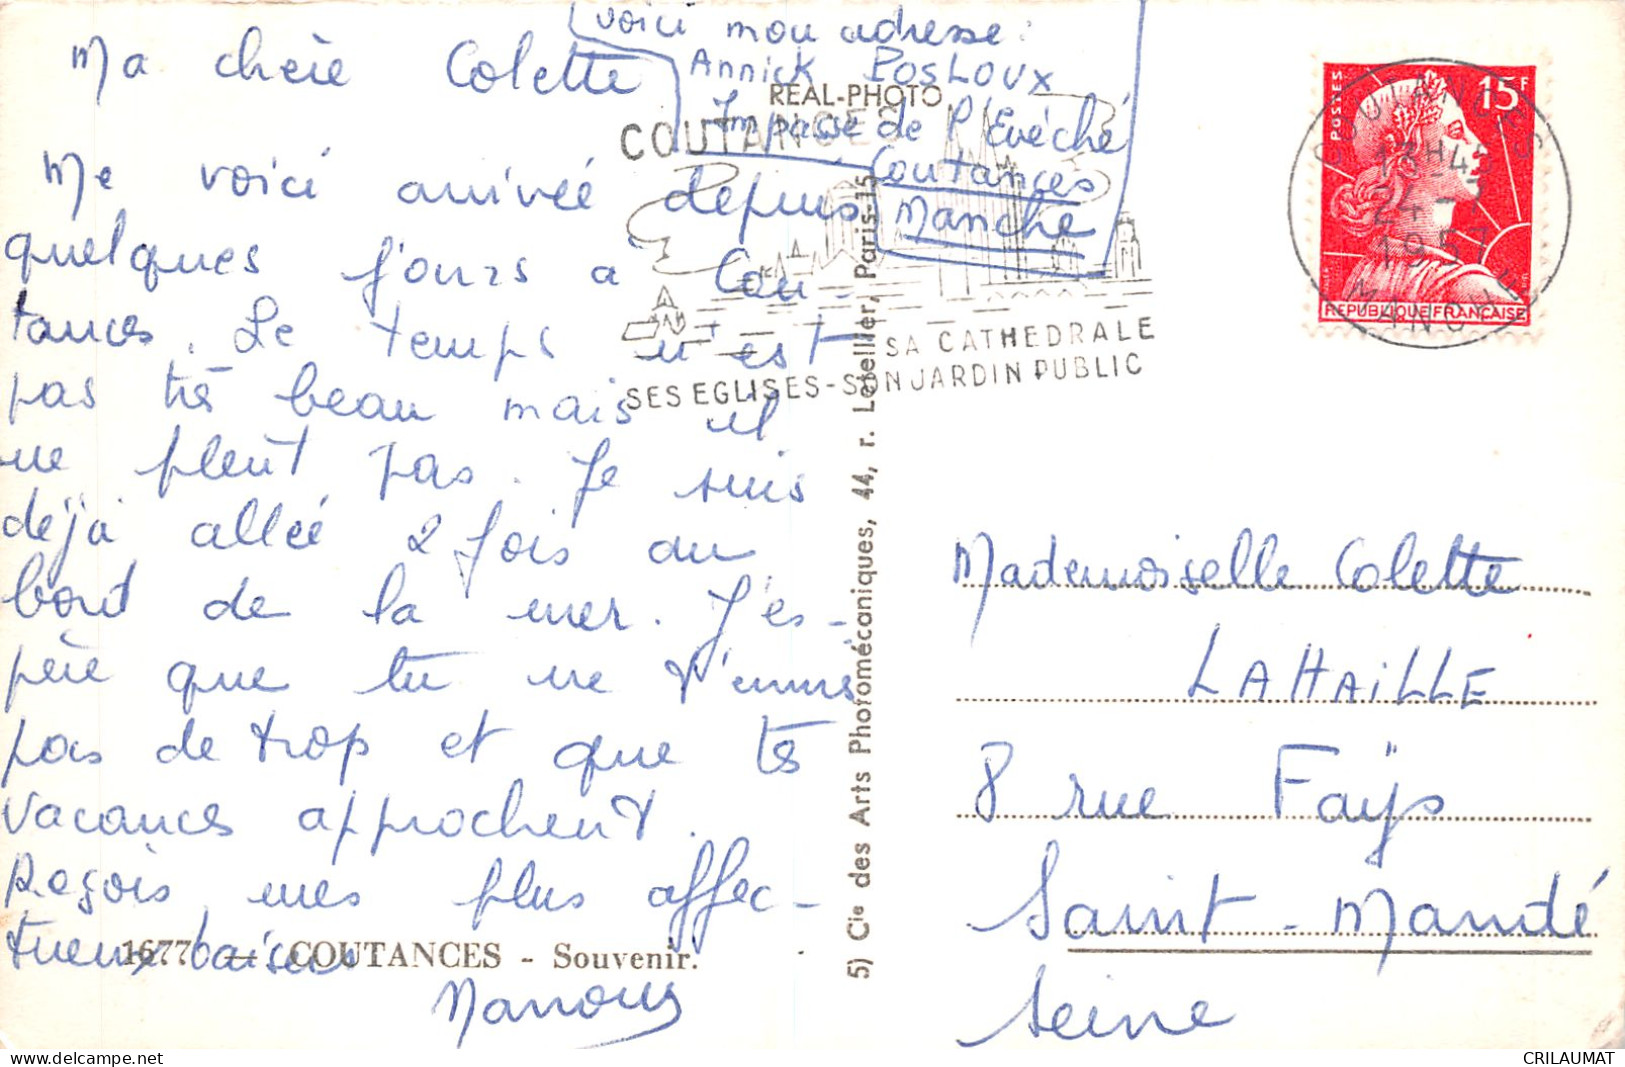 voici mon adresse :
Annick Posloux
Impasse de l'Evêché
Coutances
Manche
Ma chère Colette
Me voici arrivée depuis
quelques jours a Cou-
tances. Le temps n'est
pas très beau mais il
ne pleut pas. Je suis
déjà allée 2 fois au
bord de la mer. J'es-
père que tu ne t'ennuis
pas de trop et que tes
vacances approchent.
Reçois mes plus affec-
tueux baisers
Manous
REAL-PHOTO
COUTANCES
SA CATHEDRALE
SES EGLISES-SON JARDIN PUBLIC
1677 — COUTANCES - Souvenir.
5) Cie des Arts Photomécaniques, 44, r. Letellier, Paris-15
POSTES
15F
REPUBLIQUE FRANÇAISE
COUTANCES
13H45
24-7
1957
MANCHE
Mademoiselle Colette
LAHAiLLE
8 rue Faÿs
Saint-Mandé
Seine
CRILAUMAT